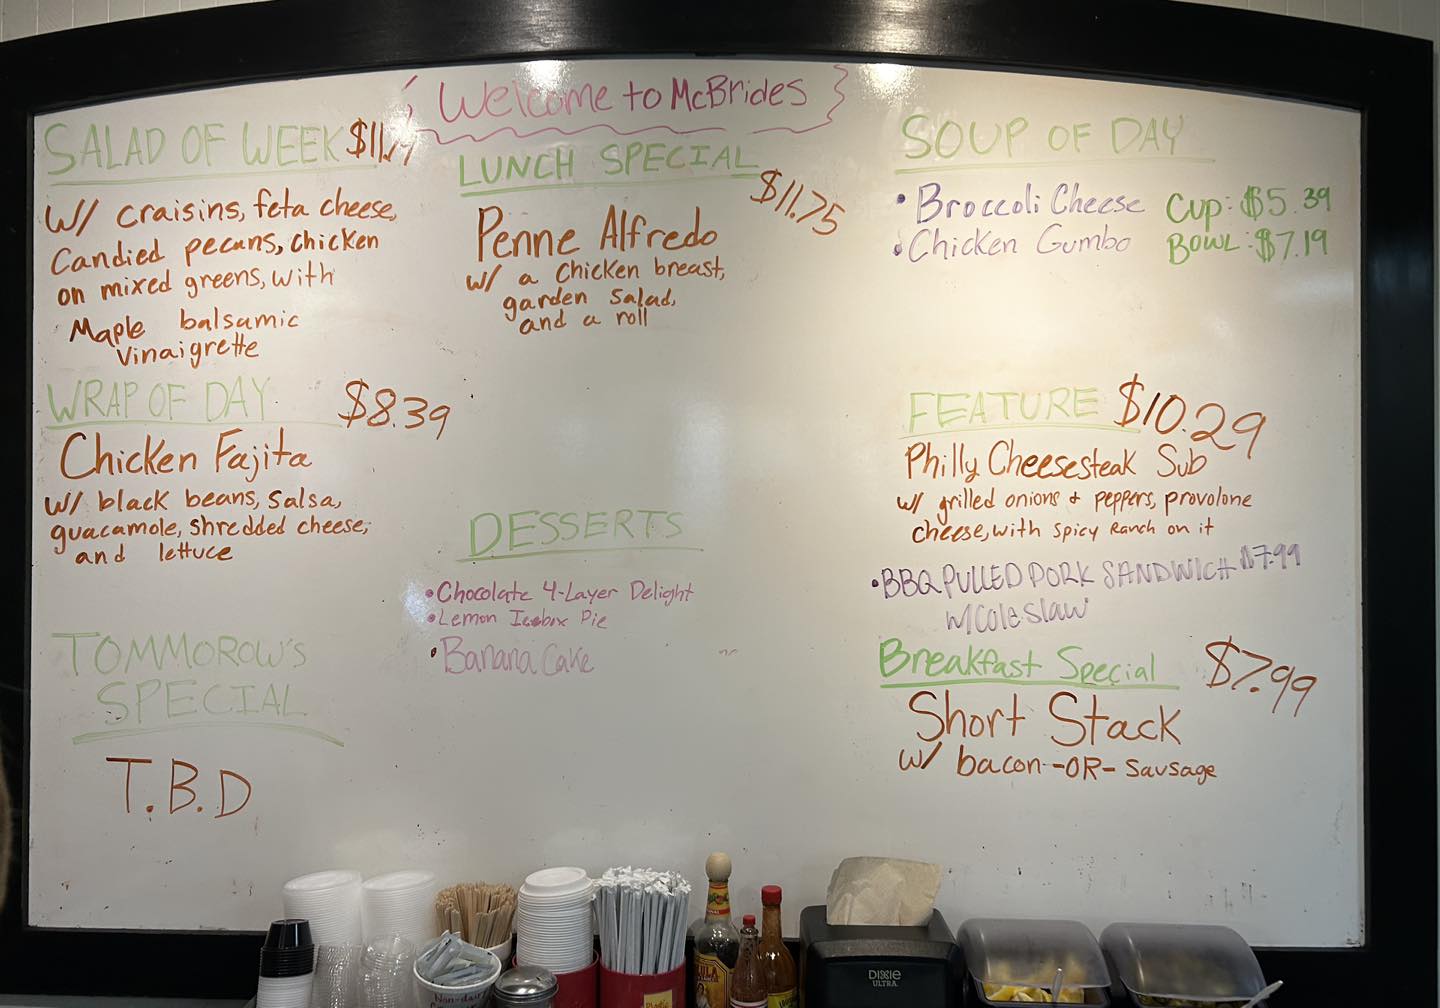 Welcome to McBrides
SALAD OF WEEK
W/ craisins, feta cheese,
Candied pecans, chicken
on mixed greens, with
Maple balsamic
Vinaigrette
WRAP OF DAY $8.39
Chicken Fajita
w/ black beans, salsa,
guacamole, shredded cheese,
and lettuce
TOMMOROW'S
SPECIAL
T.B.D
LUNCH SPECIAL
$11.75
Penne Alfredo
w/ a chicken breast,
garden salad,
and a roll
DESSERTS
•Chocolate 4-Layer Delight
•Lemon Icebox Pie
•Banana Cake
SOUP OF DAY
•Broccoli Cheese Cup: $5.39
•Chicken Gumbo BOWL: $7.19
FEATURE $10.29
Philly Cheesesteak Sub
w/ grilled onions + peppers, provolone
cheese, with spicy Ranch on it
•BBQ PULLED PORK SANDWICH $7.99
W/ Coleslaw
Breakfast Special $7.99
Short Stack
w/ bacon -OR- sausage
Non-dairy
DIXIE
ULTRA